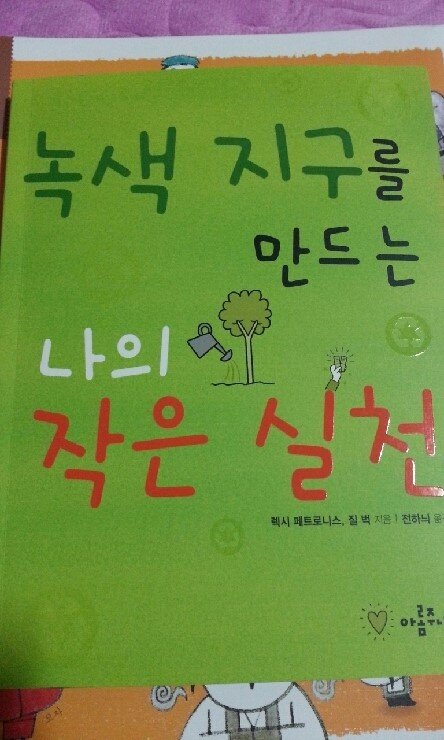 녹색 지구를
만드는
나의
작은 실천
렉시 페트로니스, 질 벅 지음 | 전하늬